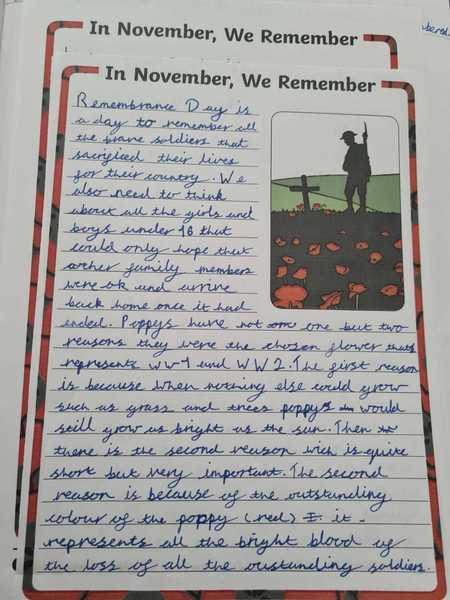 In November, We Remember
In November, We Remember
Remembrance Day is
a day to remember all
the brave soldiers that
sacrificed their lives
for their country. We
also need to think
about all the girls and
boys under 16 that
could only hope that
other family members
were ok and arrive
back home once it had
ended. Poppys have not one but two
reasons they were the chosen flower thats
represents ww1 and WW2. The first reason
is because when nothing else could grow
such as grass and trees poppys would
still grow as bright as the sun. Then
there is the second reason wich is quite
short but very important. The second
reason is because of the outstanding
colour of the poppy (red) it
represents all the bright blood of
the loss of all the oustanding soldiers.